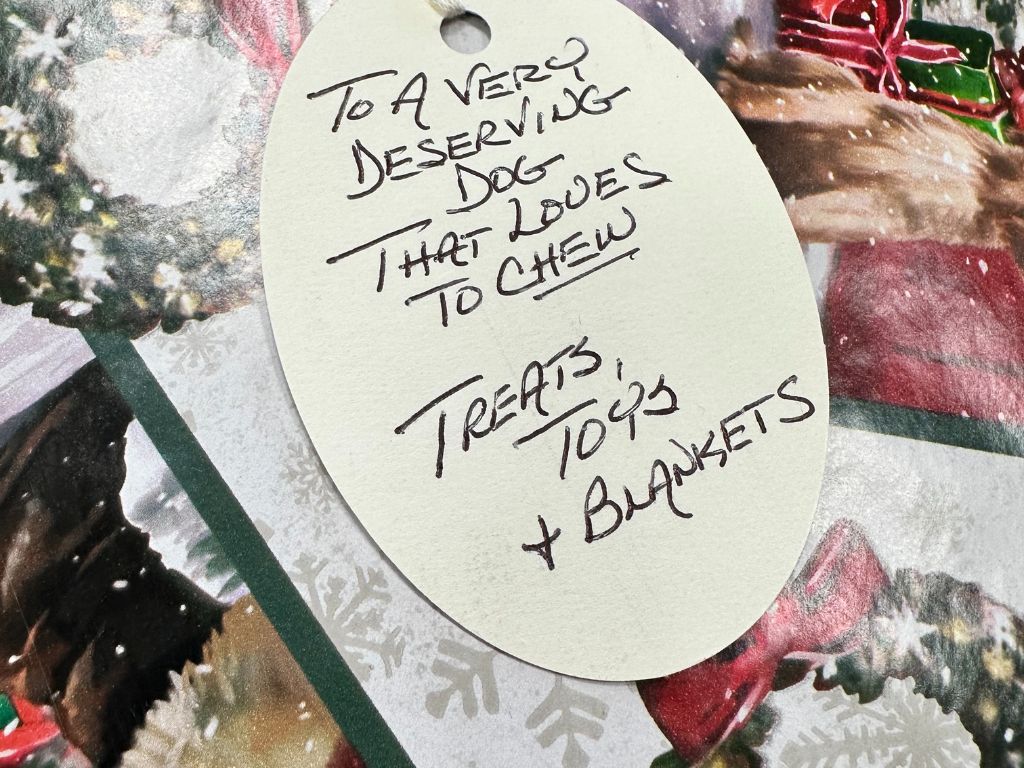 TO A VERY
DESERVING
DOG
THAT LOVES
TO CHEW
TREATS,
TOYS
+ BLANKETS